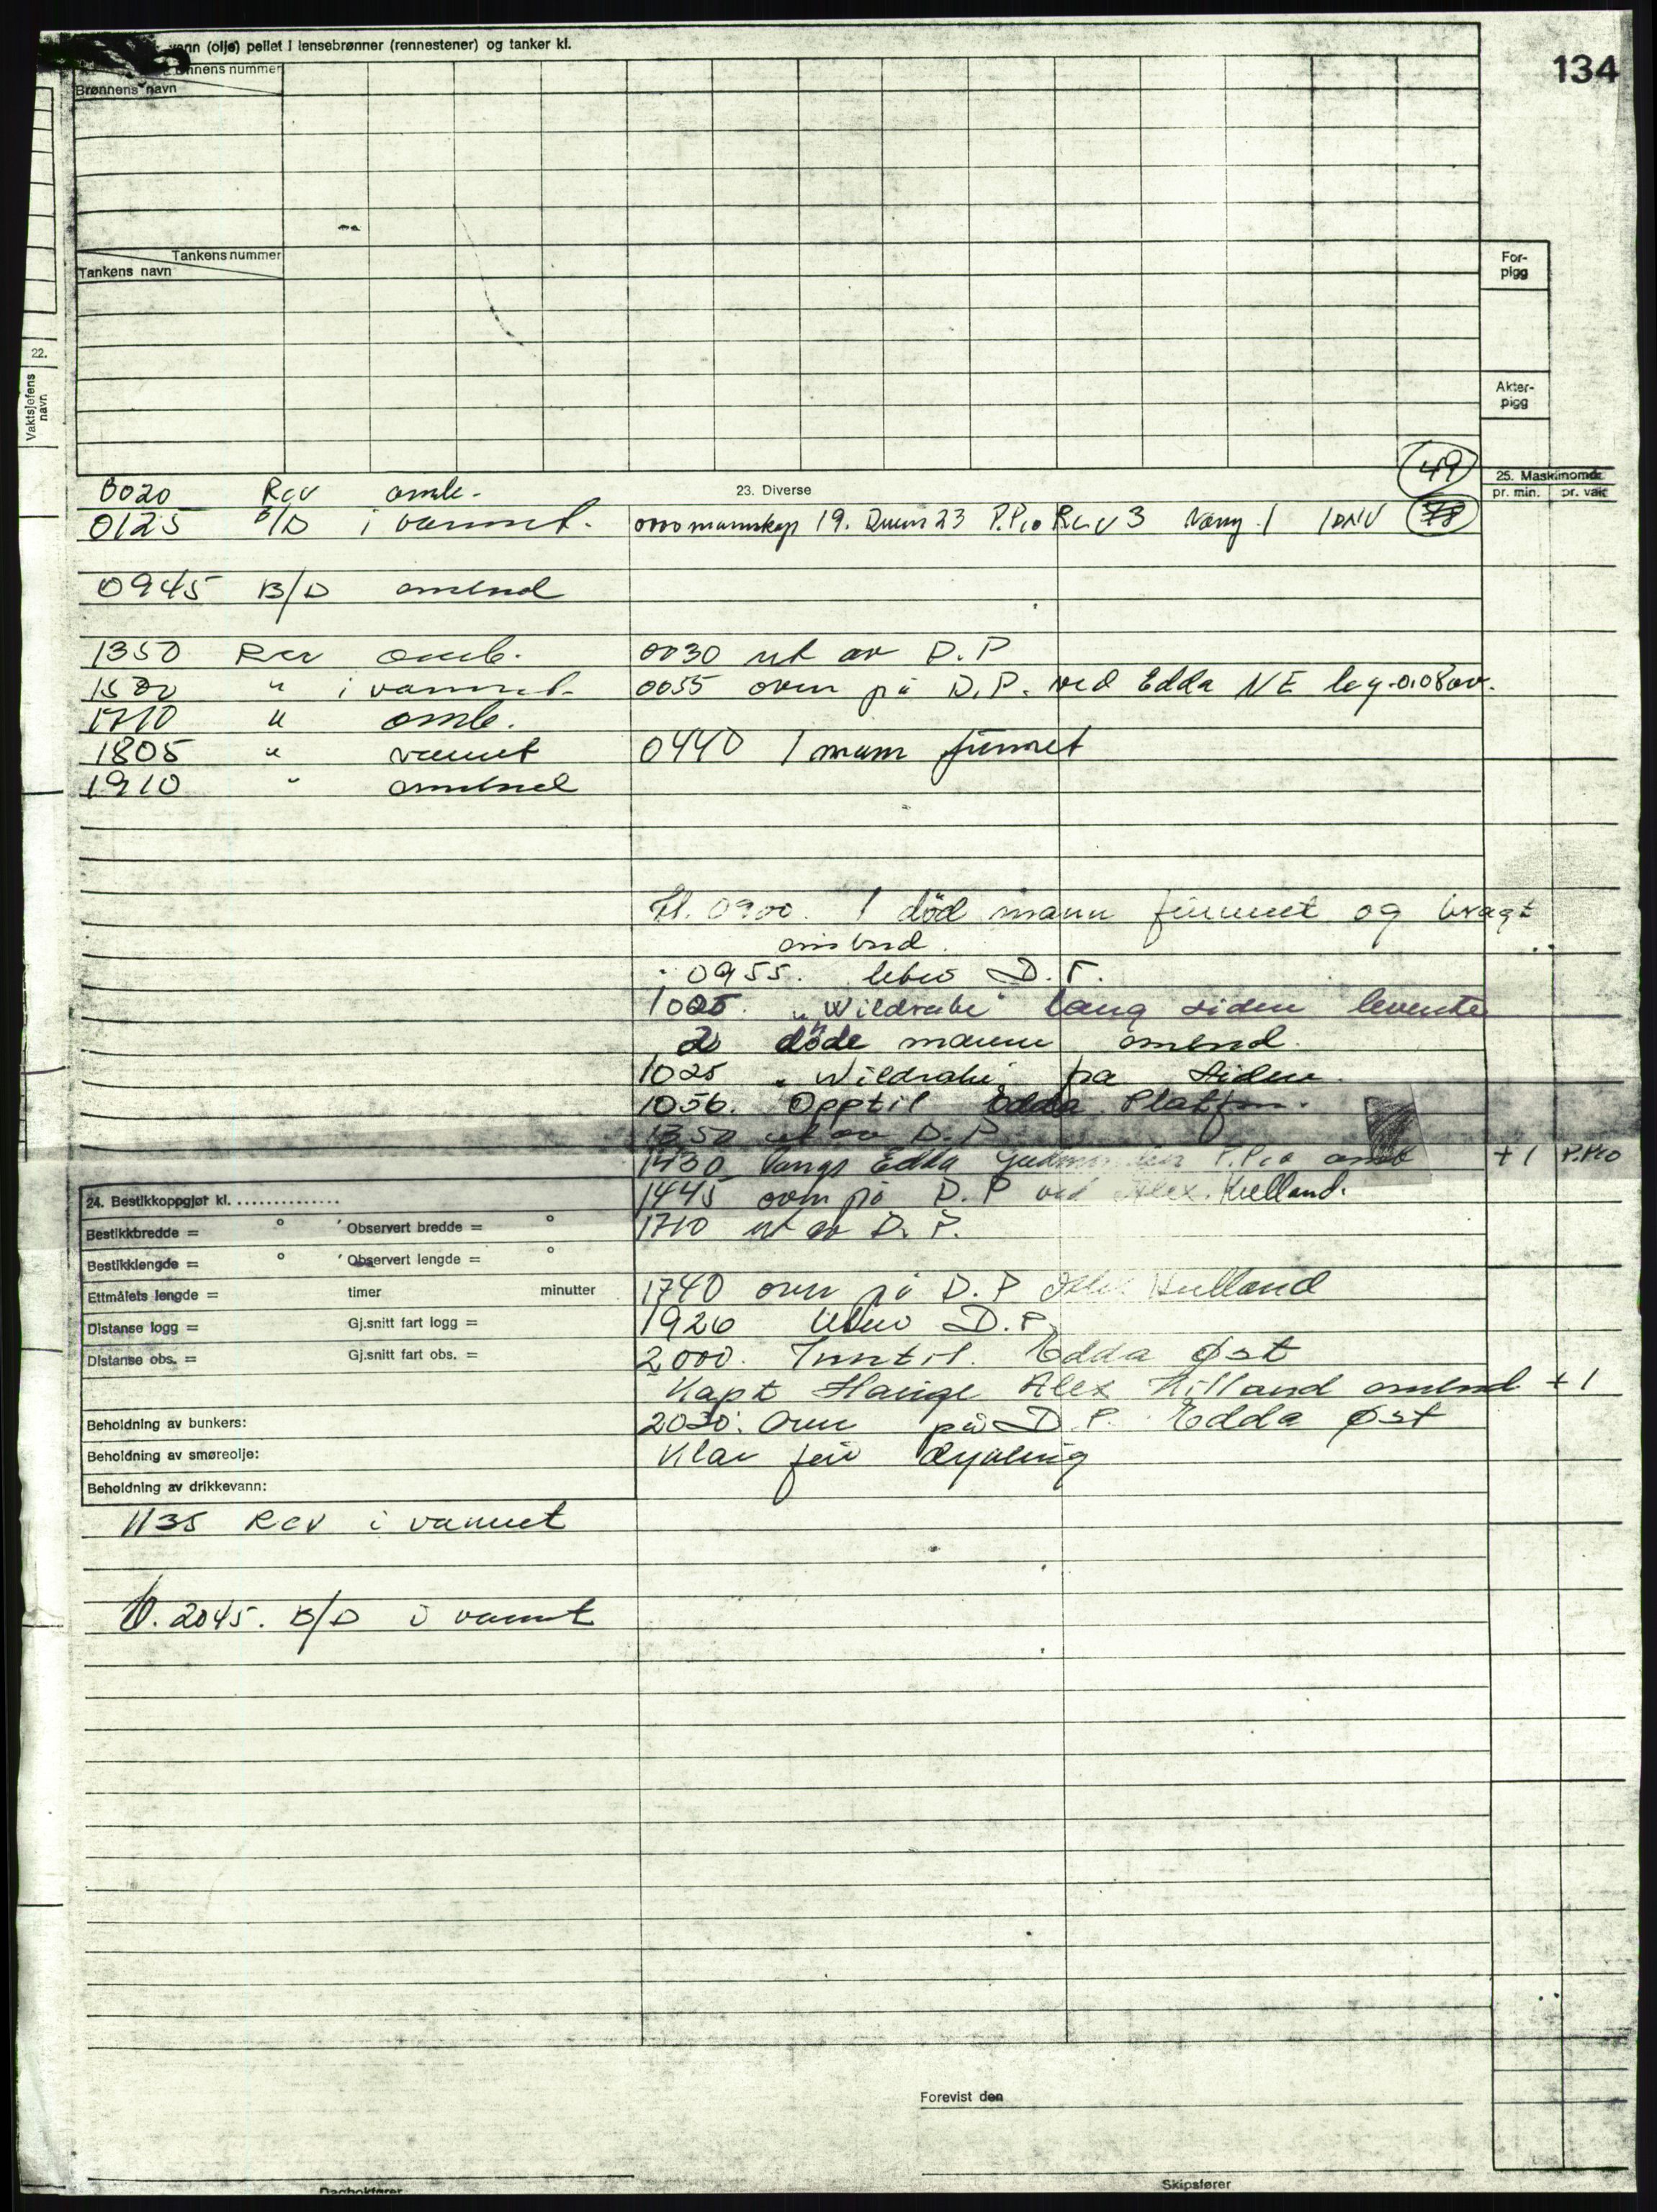 vann (olje) peilet i lensebrønner (rennestener) og tanker kl.
134
nnens nummer
Brønnens navn
Tankens nummer
Tankens navn
For-
pigg
22.
Vaktsjefens
navn
Akter-
pigg
49
25. Maskinomdr.
pr. min. pr. vakt
23. Diverse
0020 Rcv omb.
0125 B/D i vannet. 0000 mannskap 19. 23 P.Pro Rcv 3 1 1 DNV
0945 B/D ombord
1350 Rcv omb. 0030 ut av D.P
1500 " i vannet. 0055 over på D.P. ved Edda NE
1710 " omb.
1805 " vannet 0440 1 mann funnet
1910 " ombord
Kl. 0900. 1 död mann funnet og bragt
ombord.
0955. D.P.
1005. "Wildrake" lang siden leverte
2 döde mann ombord.
1025 "Wildrake" fra siden.
1056. Opptil Edda Platfm.
1350 ut av D.P
1430 langs Edda P.Pro omb +1 P.Pro
1445 over på D.P ved Alex. Kielland.
24. Bestikkoppgjør kl. ..............
1710 ut av D.P.
Bestikkbredde = ° ′ Observert bredde = °
Bestikklengde = ° ′ Observert lengde = °
Ettmålets lengde = timer minutter
1740 over på D.P
Distanse logg = Gj.snitt fart logg =
1926 D.P.
Distanse obs. = Gj.snitt fart obs. =
2000. Inntil. Edda Øst
Kapt Hauge Alex Killand ombord +1
Beholdning av bunkers:
2030. Over på D.P. Edda Øst
Beholdning av smøreolje:
Klar for dykking
Beholdning av drikkevann:
1135 Rcv i vannet
Kl. 2045. B/D i vannet
Forevist den
Dagbokfører
Skipsfører